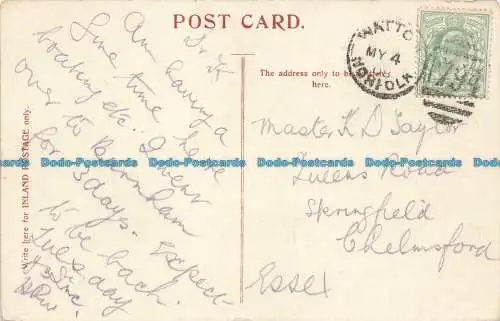 POST CARD.
(Write here for INLAND POSTAGE only.)
The address only to be written
here.
WATTO
MY 4
NORFOLK
Dr K
Am having a
fine time here
boating etc. I went
over to
for 3 days. Expect
to be back
Tuesday
Master K D Taylor
Queens Road
Springfield
Chelmsford
Essex
Dodo-Postcards Dodo-Postcards Dodo-Postcards Dodo-Postcards Dodo-Postcards